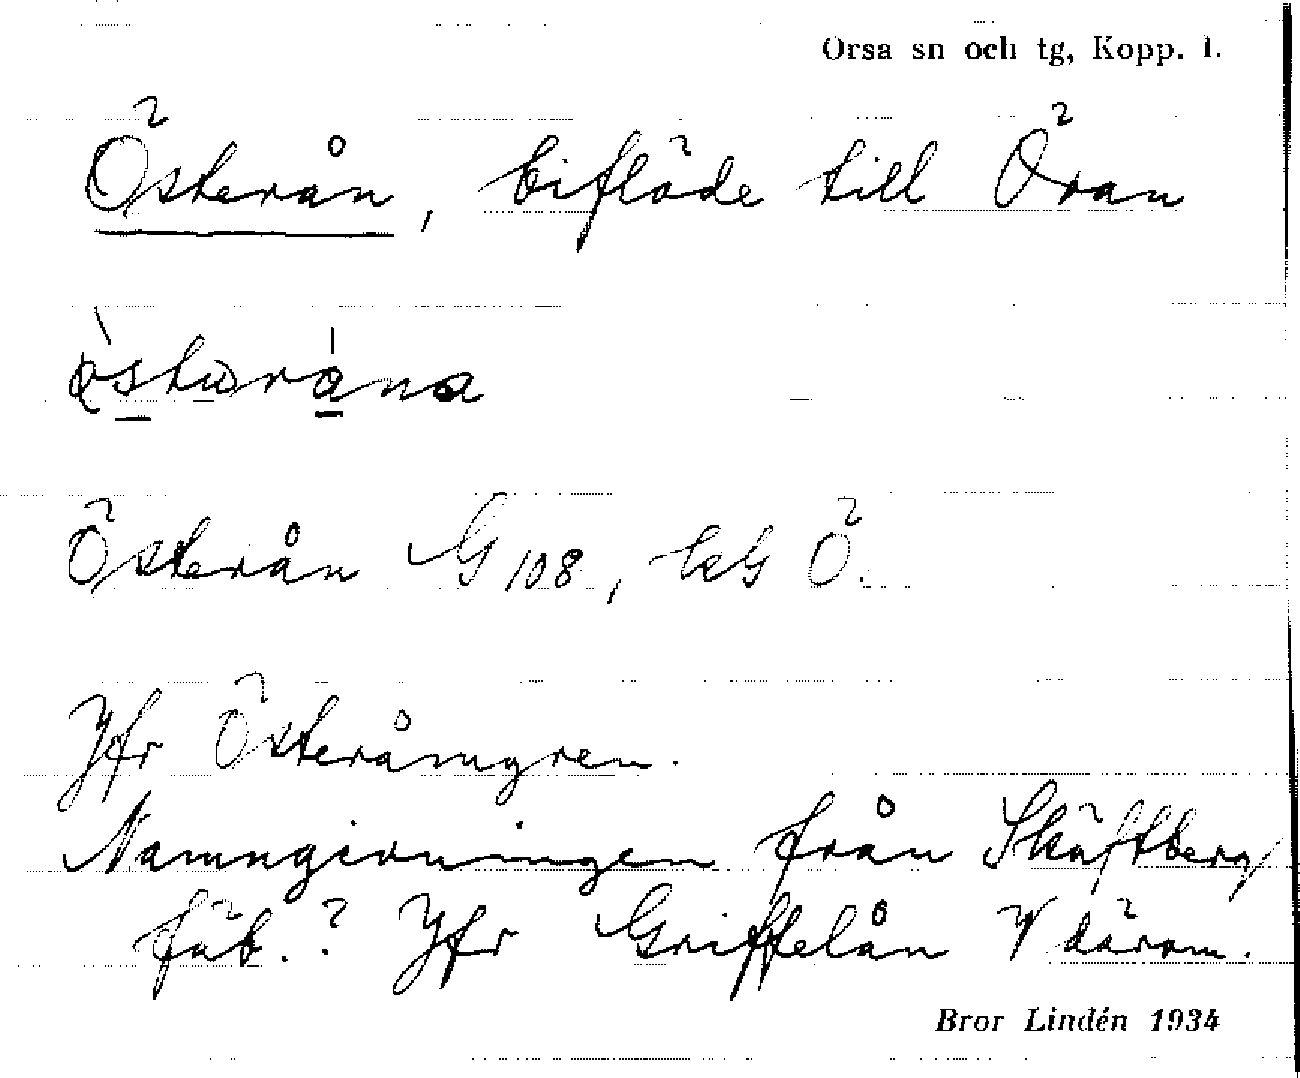 Orsa sn och tg, Kopp. l.
Österån, biflöde till Öran
Österån G 108, kG Ö.
Jfr Österåmgren.
Namngivningen från Skäftberg
fäb.? Jfr Griffelån V därom.
Bror Lindén 1934